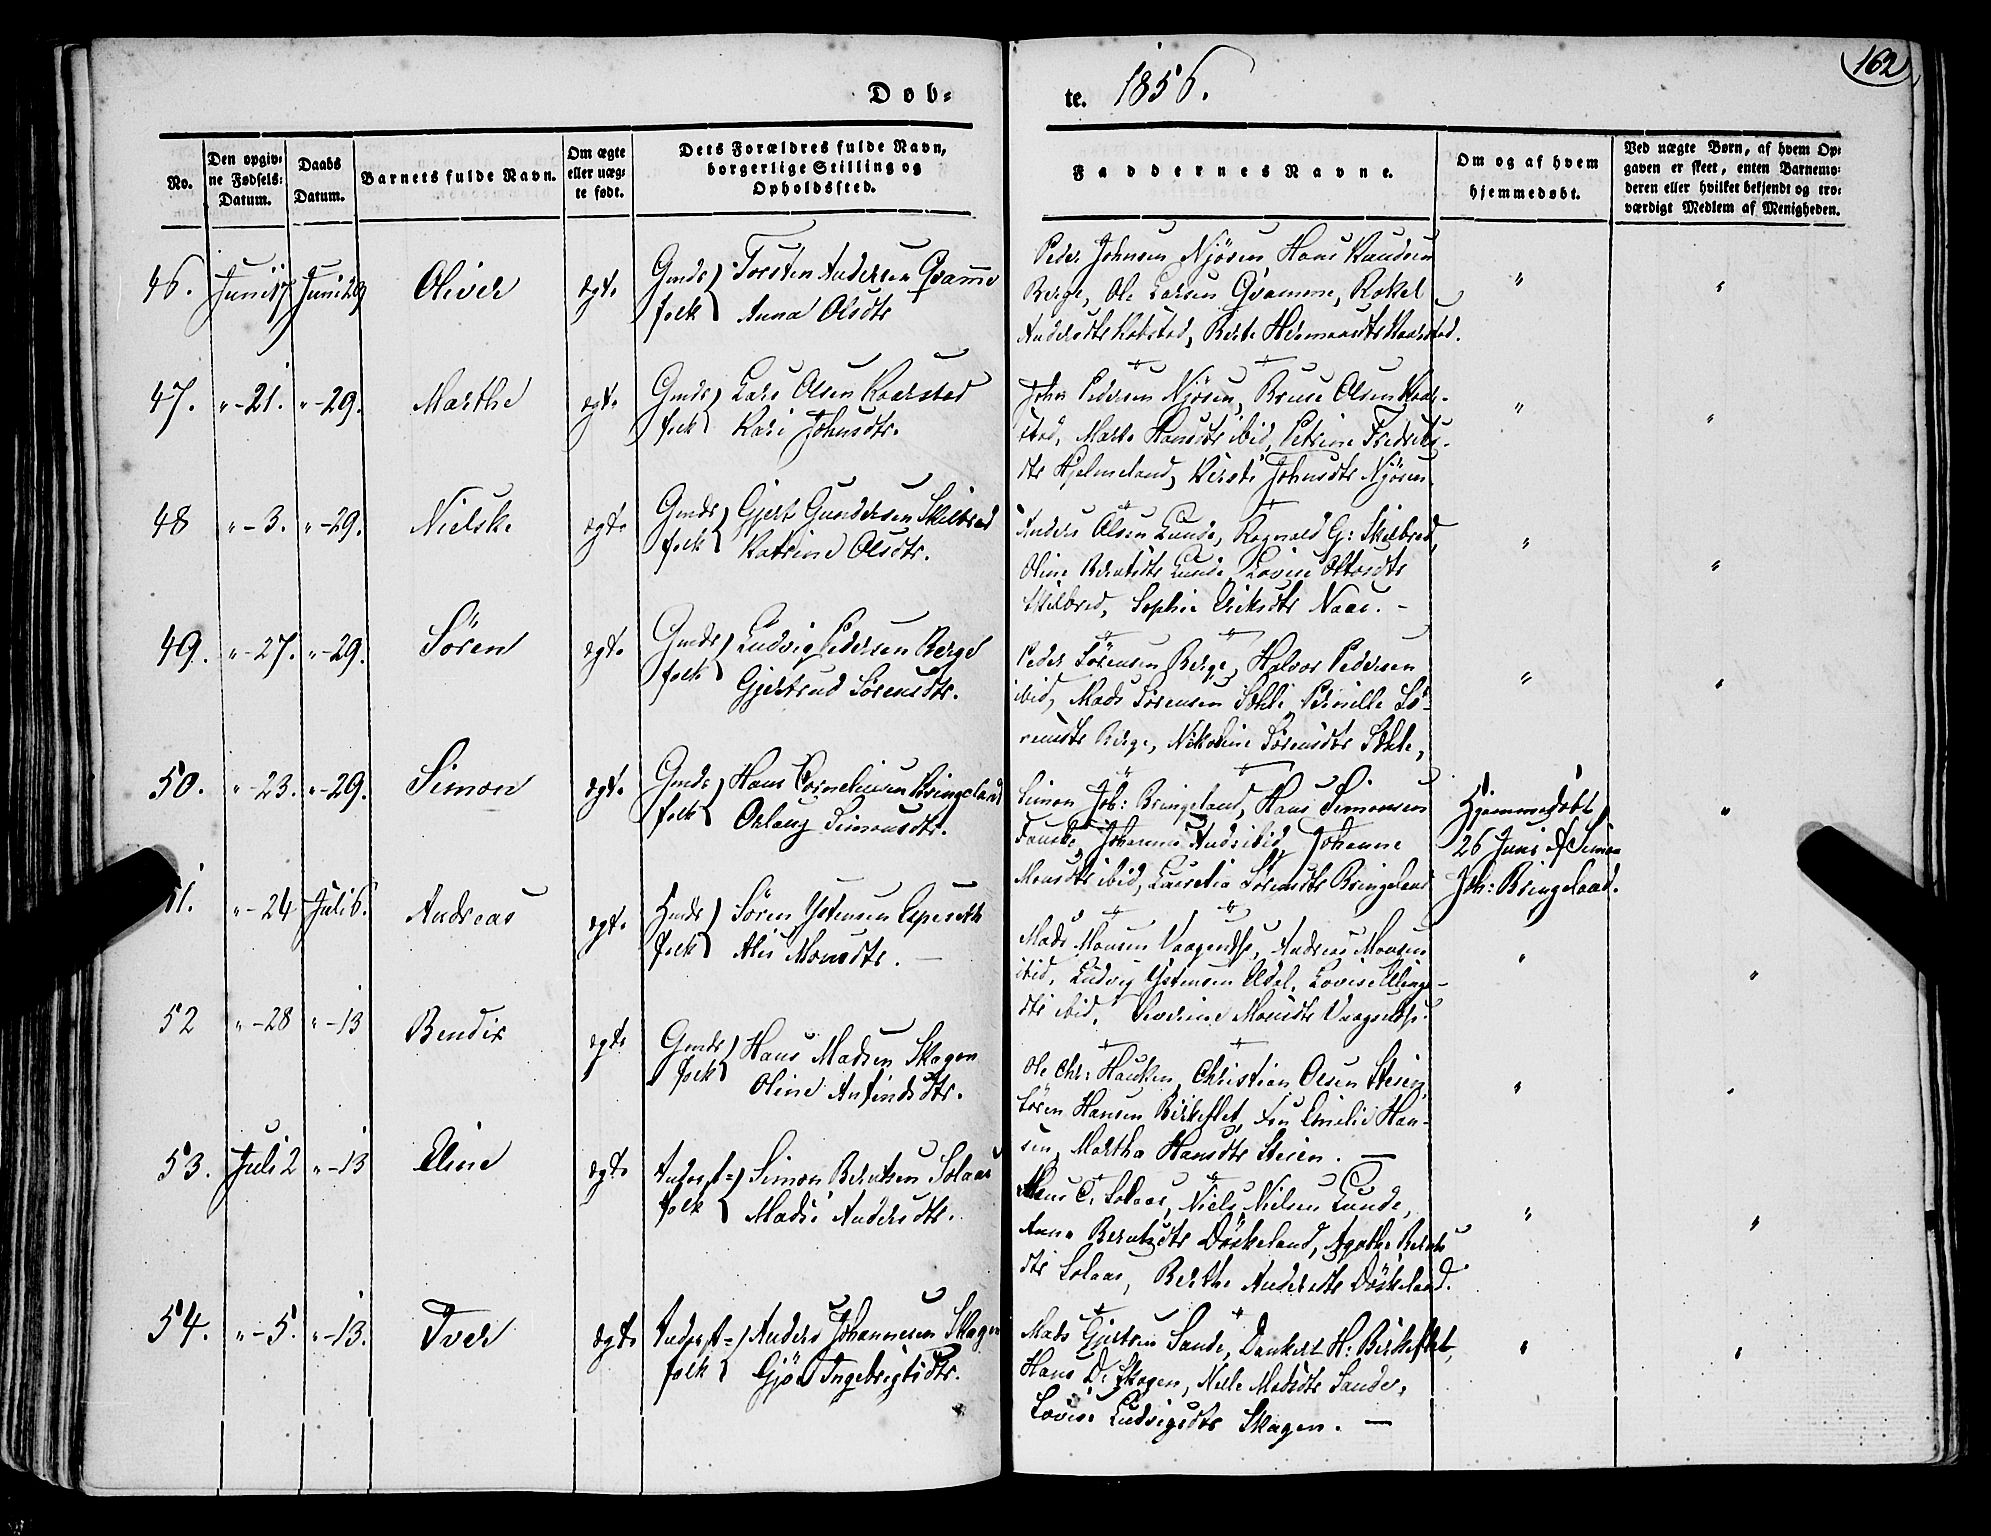 162
Døb-
te. 1856.
No.
Den opgiv-
ne Fødsels-
Datum.
Daabs
Datum.
Barnets fulde Navn.
Om ægte
eller uæg-
te født.
Dets Forældres fulde Navn,
borgerlige Stilling og
Opholdssted.
Faddernes Navne.
Om og af hvem
hjemmedøbt.
Ved uægte Børn, af hvem Op-
gaven er skeet, enten Barnemo-
deren eller hvilket bekjendt og tro-
værdigt Medlem af Menigheden.
46. Juni 17 Juni 29 Oliver ægte Gmds Torsten Andersen Qvamme
folk Anna Olsdtr
Peder Johnsen Njøsen Hans Knudsen
Berge, Ole Larsen Qvamme, Rakel
Andersdtr Kobstad, Berte Hermansdtr Kaarstad.
47. "-21. "-29. Marthe ægte Gmds Lars Olsen Kaarstad
folk Kari Johnsdtr.
John Pedersen Njøsen, Bruse Olsen Kaar-
stad, Marte Hansdtr ibid, Petrine Fredriks-
dtr Hjelmeland, Kersti Johnsdtr Njøsen.
48 "-3. "-29. Nielske ægte Gmds Gjert Gundersen Skilbred
folk Katrine Olsdtr.
Anders Olsen Lunde, Ragnald G: Skilbred,
Oline Berntsdtr Lunde, Lovise
Skilbred, Sophie Eriksdtr Naae. -
49. "-27. "-29. Søren ægte Gmds Ludvig Pedersen Berge
folk Gjertrud Sørensdtr.
Peder Sørensen Berge, Halvor Pedersen
ibid, Mads Sørensen Pernille Sø-
rensdtr Berge, Nikoline Sørensdtr
50. "-23. "-29. Simon ægte Gmds Hans Corneliusen Bringeland
folk Oslaug Simonsdtr.
Simon Joh: Bringeland, Hans Simonsen
Johannes ibid, Johanne
Monsdtr ibid, Lucretia Sørensdtr Bringeland
Hjemmedøbt
26 Juni af Simon
Joh: Bringeland.
51. "-24 Juli 6. Andreas ægte Hmds Søren Ystensen Espeseth
folk Alis Monsdtr. -
Mads Monsen Andreas Monsen
ibid, Ludvig Ystensen Lovise
dtr ibid, Severine Monsdtr
52 "-28 "-13 Bendix ægte Gmds Hans Madsen Skagen
folk Oline Anfindsdtr.
Ole Chr: Hauken, Christian Olsen Steien,
Søren Hansen Birkeflet, Emilie Han-
sen, Martha Hansdtr Steien. -
53. Juli 2 "-13 Eline ægte Inderst- Simon Berntsen Solaas
folk Madsi Andersdtr.
Hans C. Solaas, Niels Nielsen Lunde,
Anna Berntsdtr Døskeland, Agathe Bernts
dtr Solaas, Berthe Andersdtr Døskeland.
54. "-5. "-13. Iver ægte Inderst- Anders Johannesen Skagen
folk Gjøa Ingebrigtsdtr.
Mads Gjertsen Sande, Dankert H: Birkeflet,
Hans D. Skagen, Nille Madsdtr Sande,
Lovise Ludvigsdtr Skagen. -